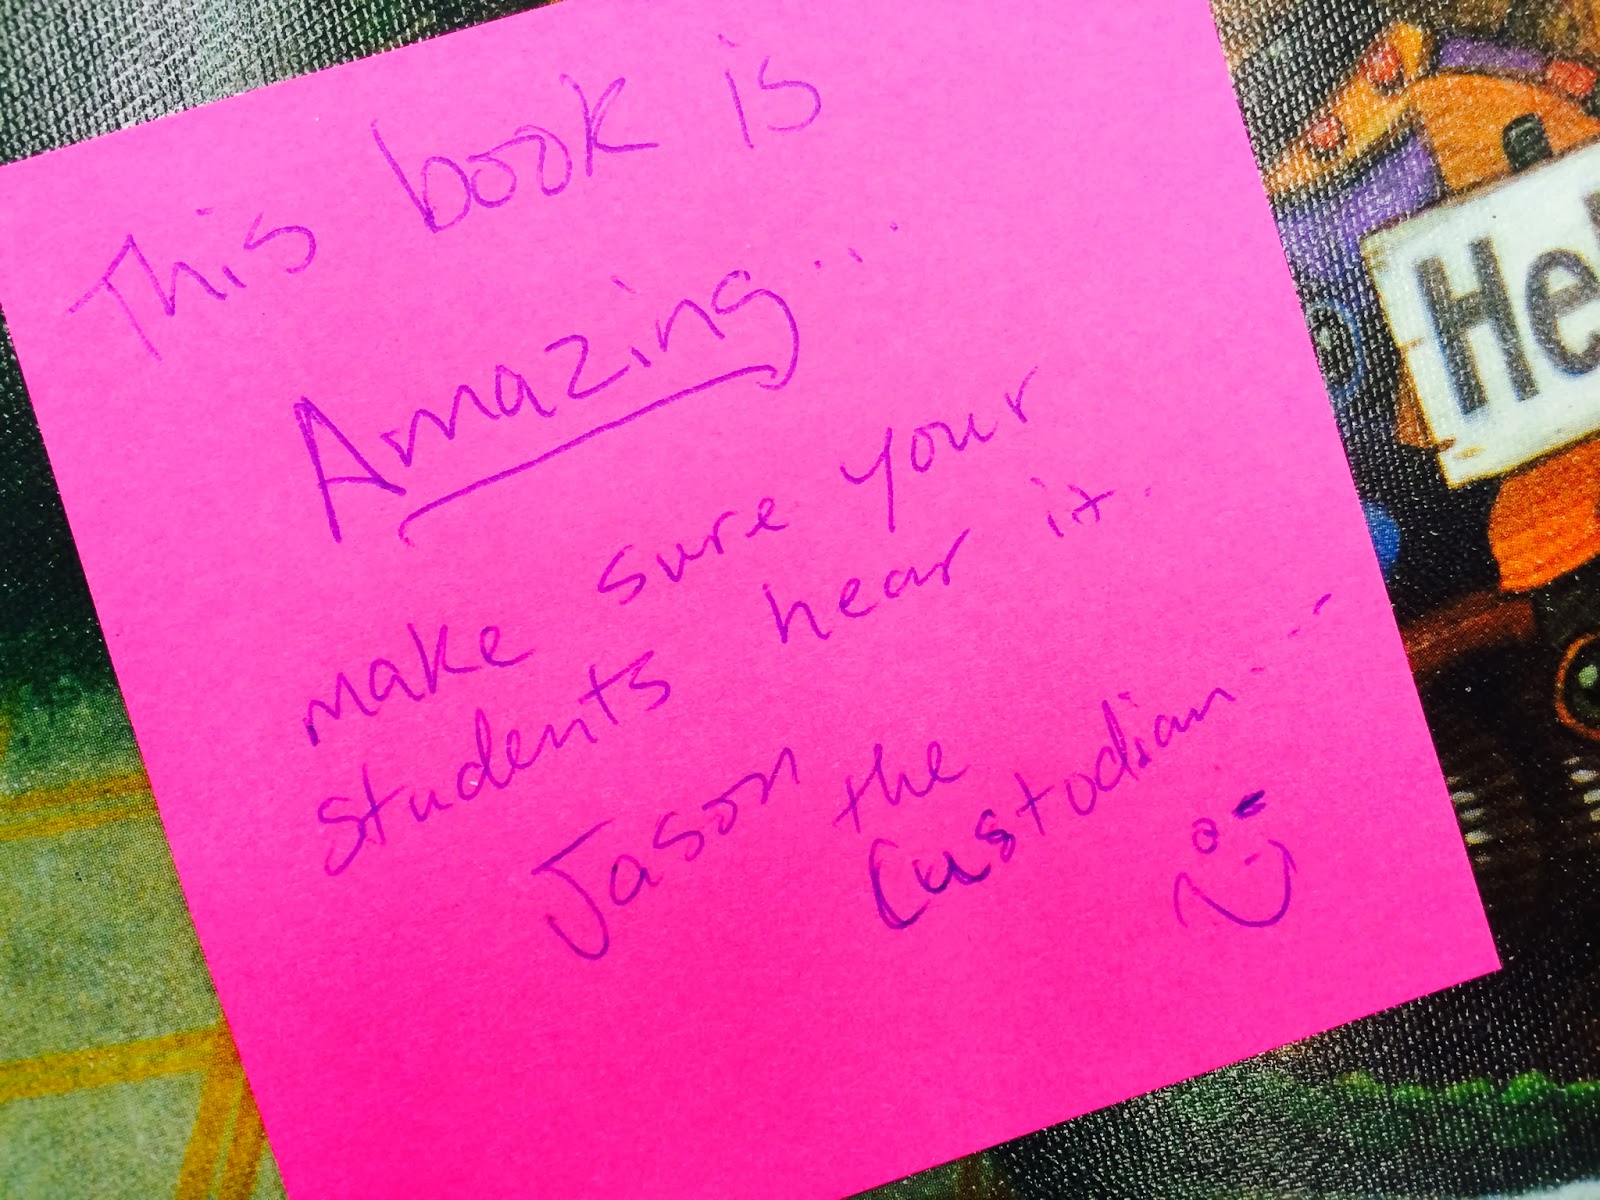 This book is
Amazing...
make sure your
students hear it.
Jason the
Custodian....
Hel